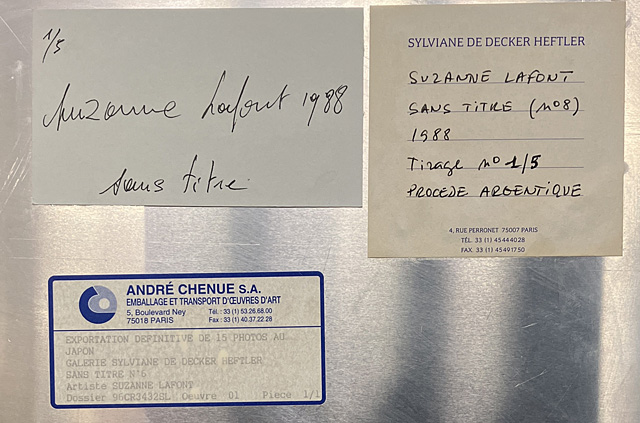 1/5
Suzanne Lafont 1988
sans titre
SYLVIANE DE DECKER HEFTLER
SUZANNE LAFONT
SANS TITRE (n°8)
1988
Tirage n° 1/5
PROCEDE ARGENTIQUE
4, RUE PERRONET 75007 PARIS
TÉL. 33 (1) 45 44 40 28
FAX. 33 (1) 45 49 17 50
ANDRÉ CHENUE S.A.
EMBALLAGE ET TRANSPORT D'ŒUVRES D'ART
5, Boulevard Ney Tél. : 33 (1) 53.26.68.00
75018 PARIS Fax : 33 (1) 40.37.22.28
EXPORTATION DEFINITIVE DE 15 PHOTOS AU
JAPON
GALERIE SYLVIANE DE DECKER HEFTLER
SANS TITRE N°6
Artiste SUZANNE LAFONT
Dossier 96CR3432SL Oeuvre 01 Piece 1/1